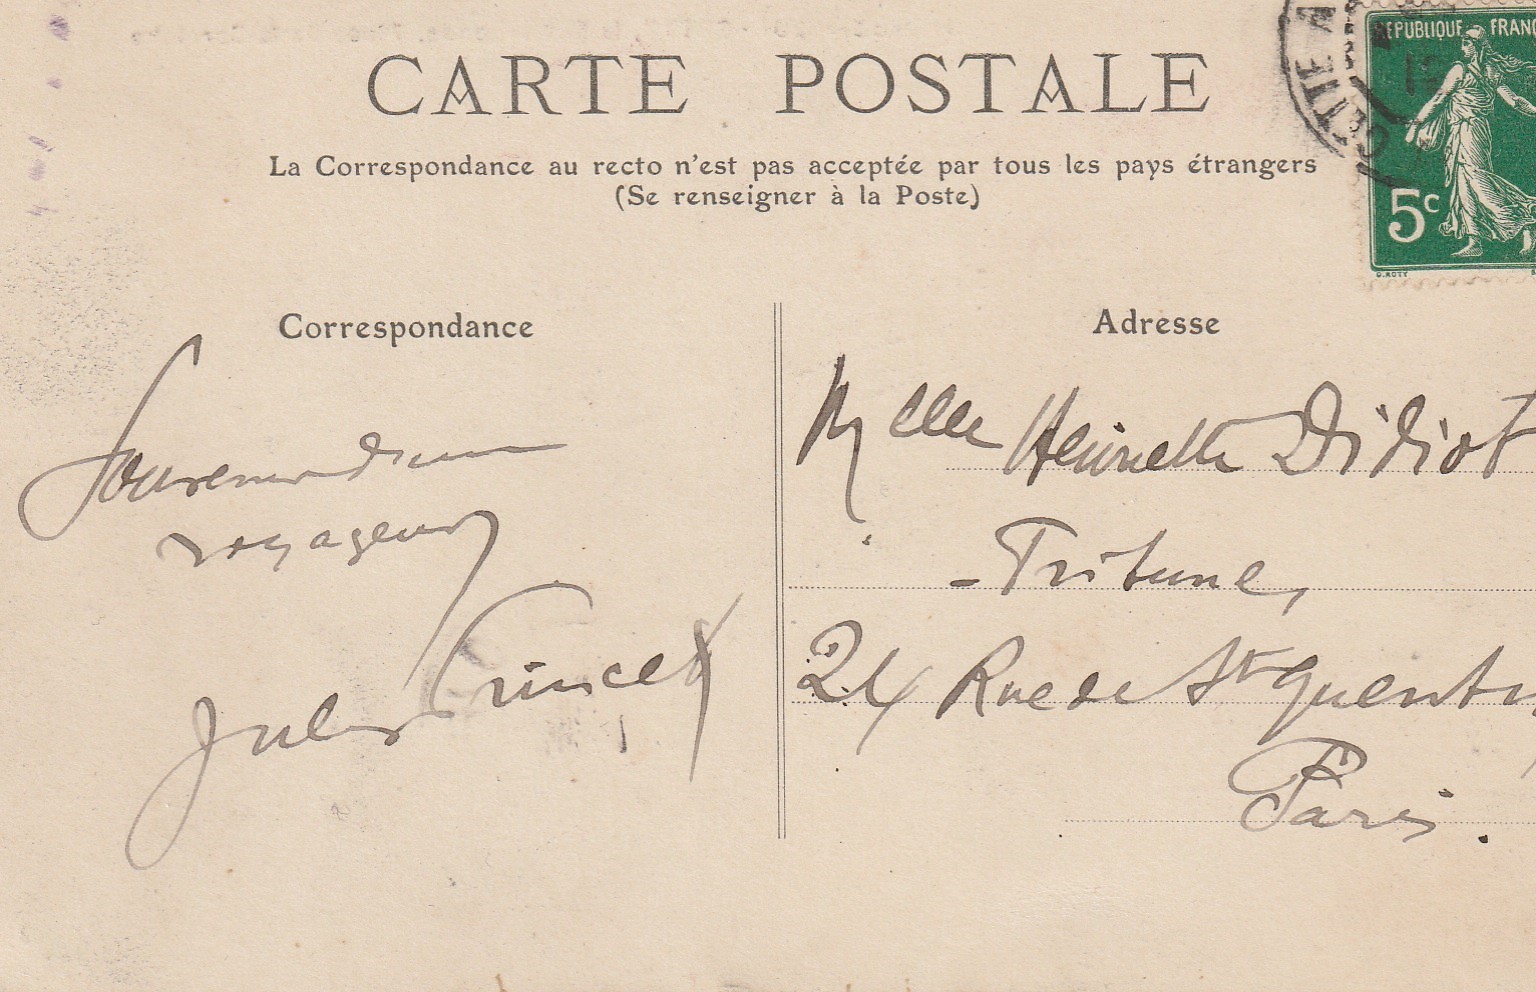 CARTE POSTALE
La Correspondance au recto n'est pas acceptée par tous les pays étrangers
(Se renseigner à la Poste)
REPUBLIQUE FRANÇ
5c
O. ROTY
Correspondance
Souvenir d'un
voyageur
Jules
Adresse
Melle Henriette Didiot
- Tribune,
24 Rue de St Quentin,
Paris.